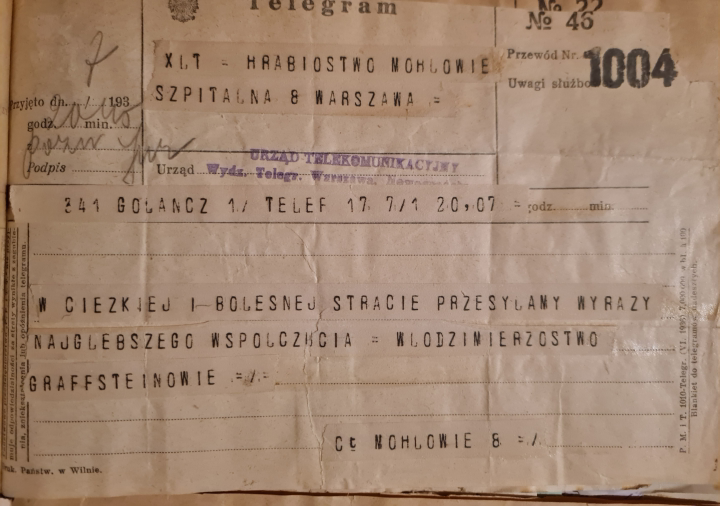 Telegram
№ 22
№ 46
7
Przewód Nr. 1004
XLT = HRABIOSTWO MOHLOWIE
Uwagi służbo
SZPITALNA 8 WARSZAWA =
Przyjęto dn. / 193
godz. min.
Podpis
Urząd
URZĄD TELEKOMUNIKACYJNY
Wydz. Telegr. Warszawa,
341 GOLANCZ 1/ TELEF 17 7/1 20,07 = godz. min.
W CIEZKIEJ I BOLESNEJ STRACIE PRZESYLAMY WYRAZY
NAJGLEBSZEGO WSPOLCZUCIA = WLODZIMIERZOSTWO
GRAFFSTEINOWIE =/=
Ct MOHLOWIE 8 =/
Druk. Państw. w Wilnie.
nia, zniekształcenia lub opóźnienia telegramu.
Blankiet do telegramów nadesłanych.